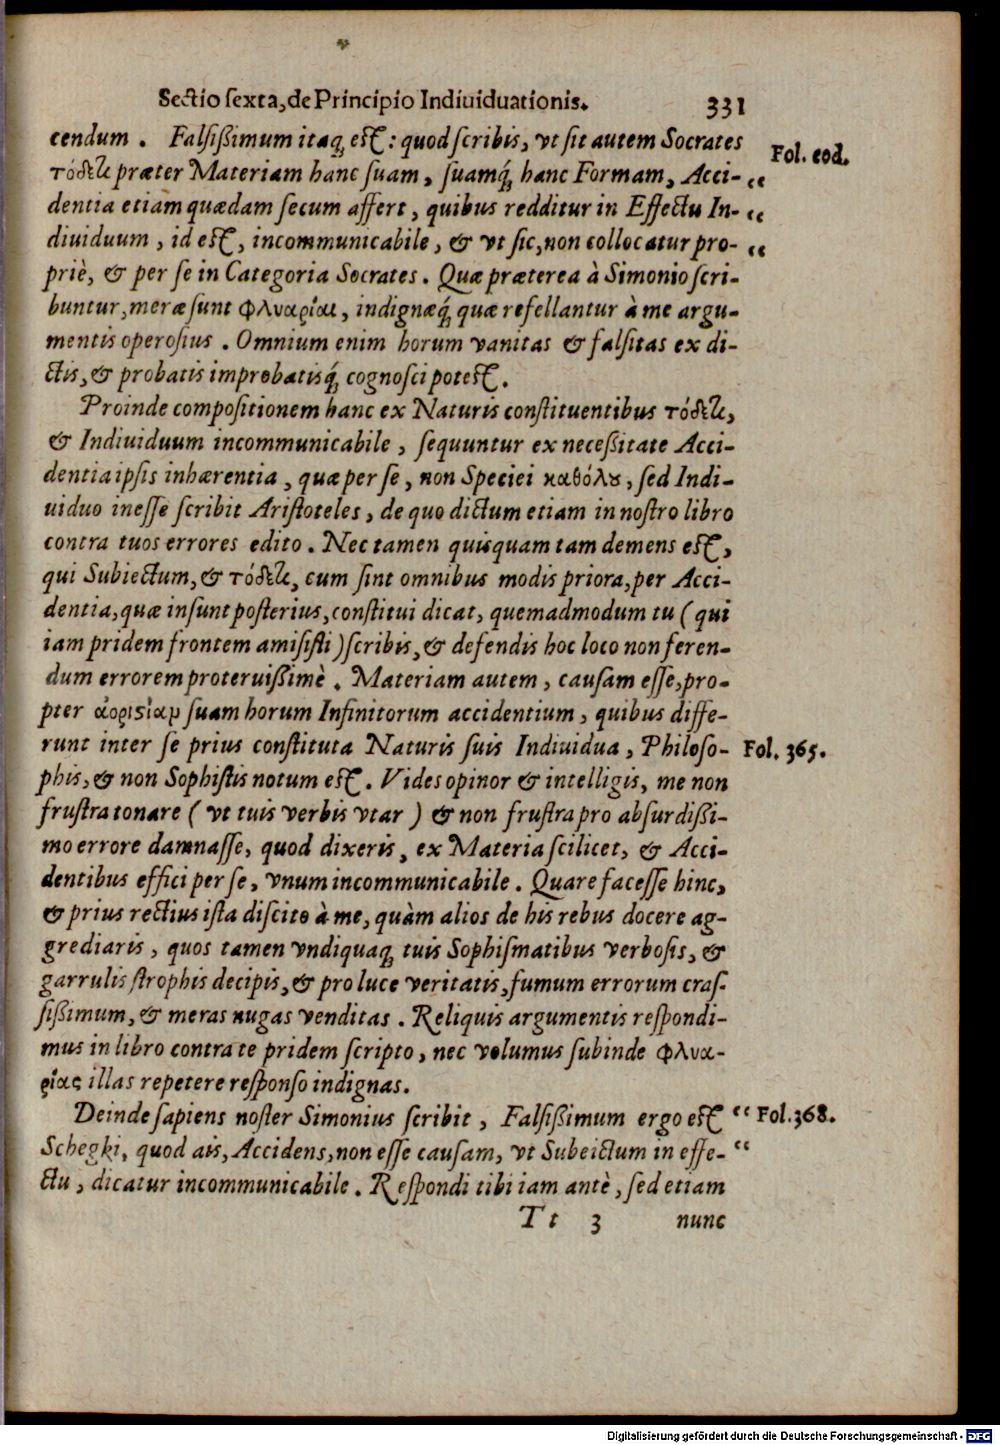 Sectio sexta, de Principio Indiuiduationis. 331
cendum. Falsißimum itaq́; est: quod scribis, vt sit autem Socrates Fol. eod.
τόδε τι præter Materiam hanc suam, suamq́; hanc Formam, Acci- “
dentia etiam quædam secum affert, quibus redditur in Effectu In- “
diuiduum, id est, incommunicabile, & vt sic, non collocatur pro- “
priè, & per se in Categoria Socrates. Quæ præterea à Simonio scri-
buntur, meræ sunt φλυαρίαι, indignæq́; quæ refellantur à me argu-
mentis operosius. Omnium enim horum vanitas & falsitas ex di-
ctis, & probatis improbatisq́; cognosci potest.
Proinde compositionem hanc ex Naturis constituentibus τόδε τι,
& Indiuiduum incommunicabile, sequuntur ex necessitate Acci-
dentia ipsis inhærentia, quæ per se, non Speciei καθόλου, sed Indi-
uiduo inesse scribit Aristoteles, de quo dictum etiam in nostro libro
contra tuos errores edito. Nec tamen quisquam tam demens est,
qui Subiectum, & τόδε τι, cum sint omnibus modis priora, per Acci-
dentia, quæ insunt posterius, constitui dicat, quemadmodum tu (qui
iam pridem frontem amisisti) scribis, & defendis hoc loco non feren-
dum errorem proteruißimè. Materiam autem, causam esse, pro-
pter ἀοριστίαμ suam horum Infinitorum accidentium, quibus diffe-
runt inter se prius constituta Naturis suis Indiuidua, Philoso- Fol. 365.
phis, & non Sophistis notum est. Vides opinor & intelligis, me non
frustra tonare (vt tuis verbis vtar) & non frustra pro absurdißi-
mo errore damnasse, quod dixeris, ex Materia scilicet, & Acci-
dentibus effici per se, vnum incommunicabile. Quare facesse hinc,
& prius rectius ista discito à me, quàm alios de his rebus docere ag-
grediaris, quos tamen vndiquaq; tuis Sophismatibus verbosis, &
garrulis strophis decipis, & pro luce veritatis, fumum errorum cras-
sißimum, & meras nugas venditas. Reliquis argumentis respondi-
mus in libro contra te pridem scripto, nec volumus subinde φλυα-
ρίας illas repetere responso indignas.
Deinde sapiens noster Simonius scribit, Falsißimum ergo est “ Fol. 368.
Schegki, quod ais, Accidens, non esse causam, vt Subeictum in effe- “
ctu, dicatur incommunicabile. Respondi tibi iam antè, sed etiam
Tt 3 nunc
Digitalisierung gefördert durch die Deutsche Forschungsgemeinschaft - DFG